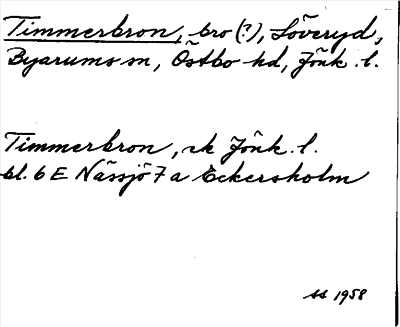 Timmerbron, bro (?), Löveryd,
Byarums sn, Östbo hd, Jönk. l.
Timmerbron, ek Jönk. l.
bl. 6 E Nässjö 7 a Eckersholm
SS 1958